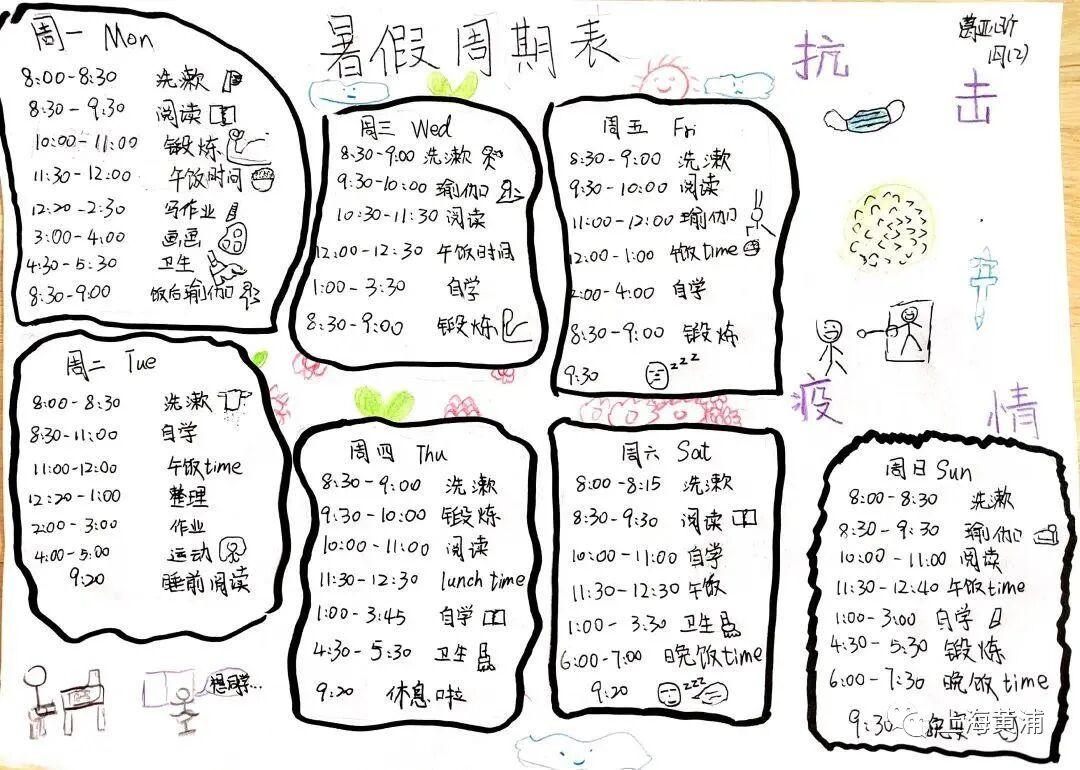 暑假周期表
抗
击
疫
情
周一 Mon
8:00-8:30 洗漱
8:30-9:30 阅读
10:00-11:00 锻炼
11:30-12:00 午饭时间
12:20-2:30 写作业
3:00-4:00 画画
4:30-5:30 卫生
8:30-9:00 饭后瑜伽
周二 Tue
8:00-8:30 洗漱
8:30-11:00 自学
11:00-12:00 午饭time
12:20-1:00 整理
2:00-3:00 作业
4:00-5:00 运动
9:20 睡前阅读
周三 Wed
8:30-9:00 洗漱
9:30-10:00 瑜伽
10:30-11:30 阅读
12:00-12:30 午饭时间
1:00-3:30 自学
8:30-9:00 锻炼
周四 Thu
8:30-9:00 洗漱
9:30-10:00 锻炼
10:00-11:00 阅读
11:30-12:30 lunch time
1:00-3:45 自学
4:30-5:30 卫生
9:20 休息啦
周五 Fri
8:30-9:00 洗漱
9:30-10:00 阅读
11:00-12:00 瑜伽
12:00-1:00 午饭time
2:00-4:00 自学
8:30-9:00 锻炼
9:30 zzz
周六 Sat
8:00-8:15 洗漱
8:30-9:30 阅读
10:00-11:00 自学
11:30-12:30 午饭
1:00-3:30 卫生
6:00-7:00 晚饭time
9:20 zzz
周日 Sun
8:00-8:30 洗漱
8:30-9:30 瑜伽
10:00-11:00 阅读
11:30-12:40 午饭time
1:00-3:00 自学
4:30-5:30 锻炼
6:00-7:30 晚饭time
9:30
想同学...
上海黄浦